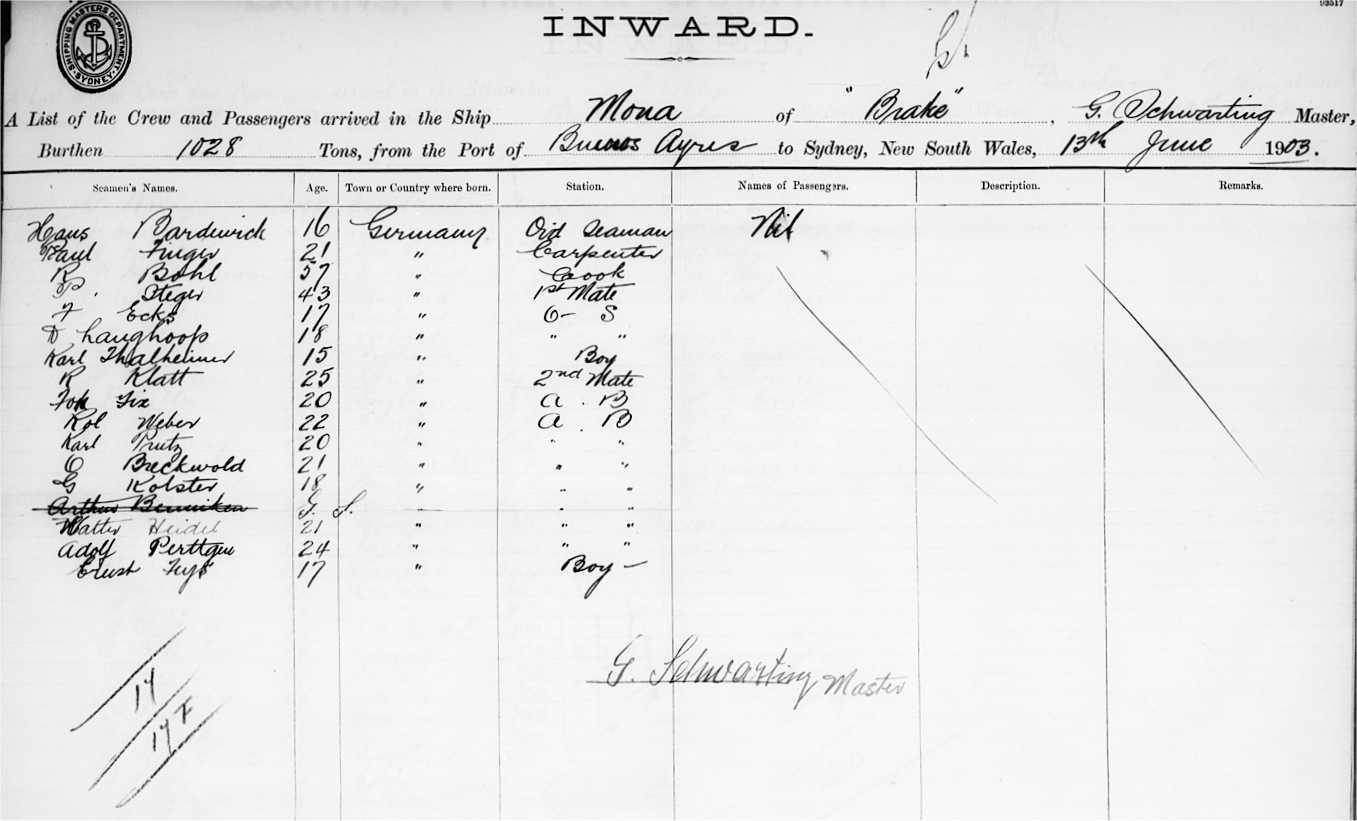 93517
SHIPPING MASTERS DEPARTMENT. SYDNEY
INWARD.
A List of the Crew and Passengers arrived in the Ship Mona of "Brake", G. Schwarting Master,
Burthen 1028 Tons, from the Port of Buenos Ayres to Sydney, New South Wales, 13th June 1903.
Seamen's Names. Age. Town or Country where born. Station. Names of Passengers. Description. Remarks.
Hans Bardewick 16 Germany Ord Seaman Nil
Paul Finger 21 " Carpenter
R Bohl 57 " Cook
Steger 43 " 1st Mate
F Ecks 17 " O- S
D 18 " " "
Karl Thalheimer 15 " Boy
R Klatt 25 " 2nd Mate
Fix 20 " A. B
Rol Weber 22 " A. B
Karl Prutz 20 " " "
O Breckwold 21 " " "
G Kolster 18 " " "
Arthur " " "
Walter Heidel 21 " " "
Adolf 24 " " "
Ernst 17 " Boy -
G. Schwarting Master
17
17 F